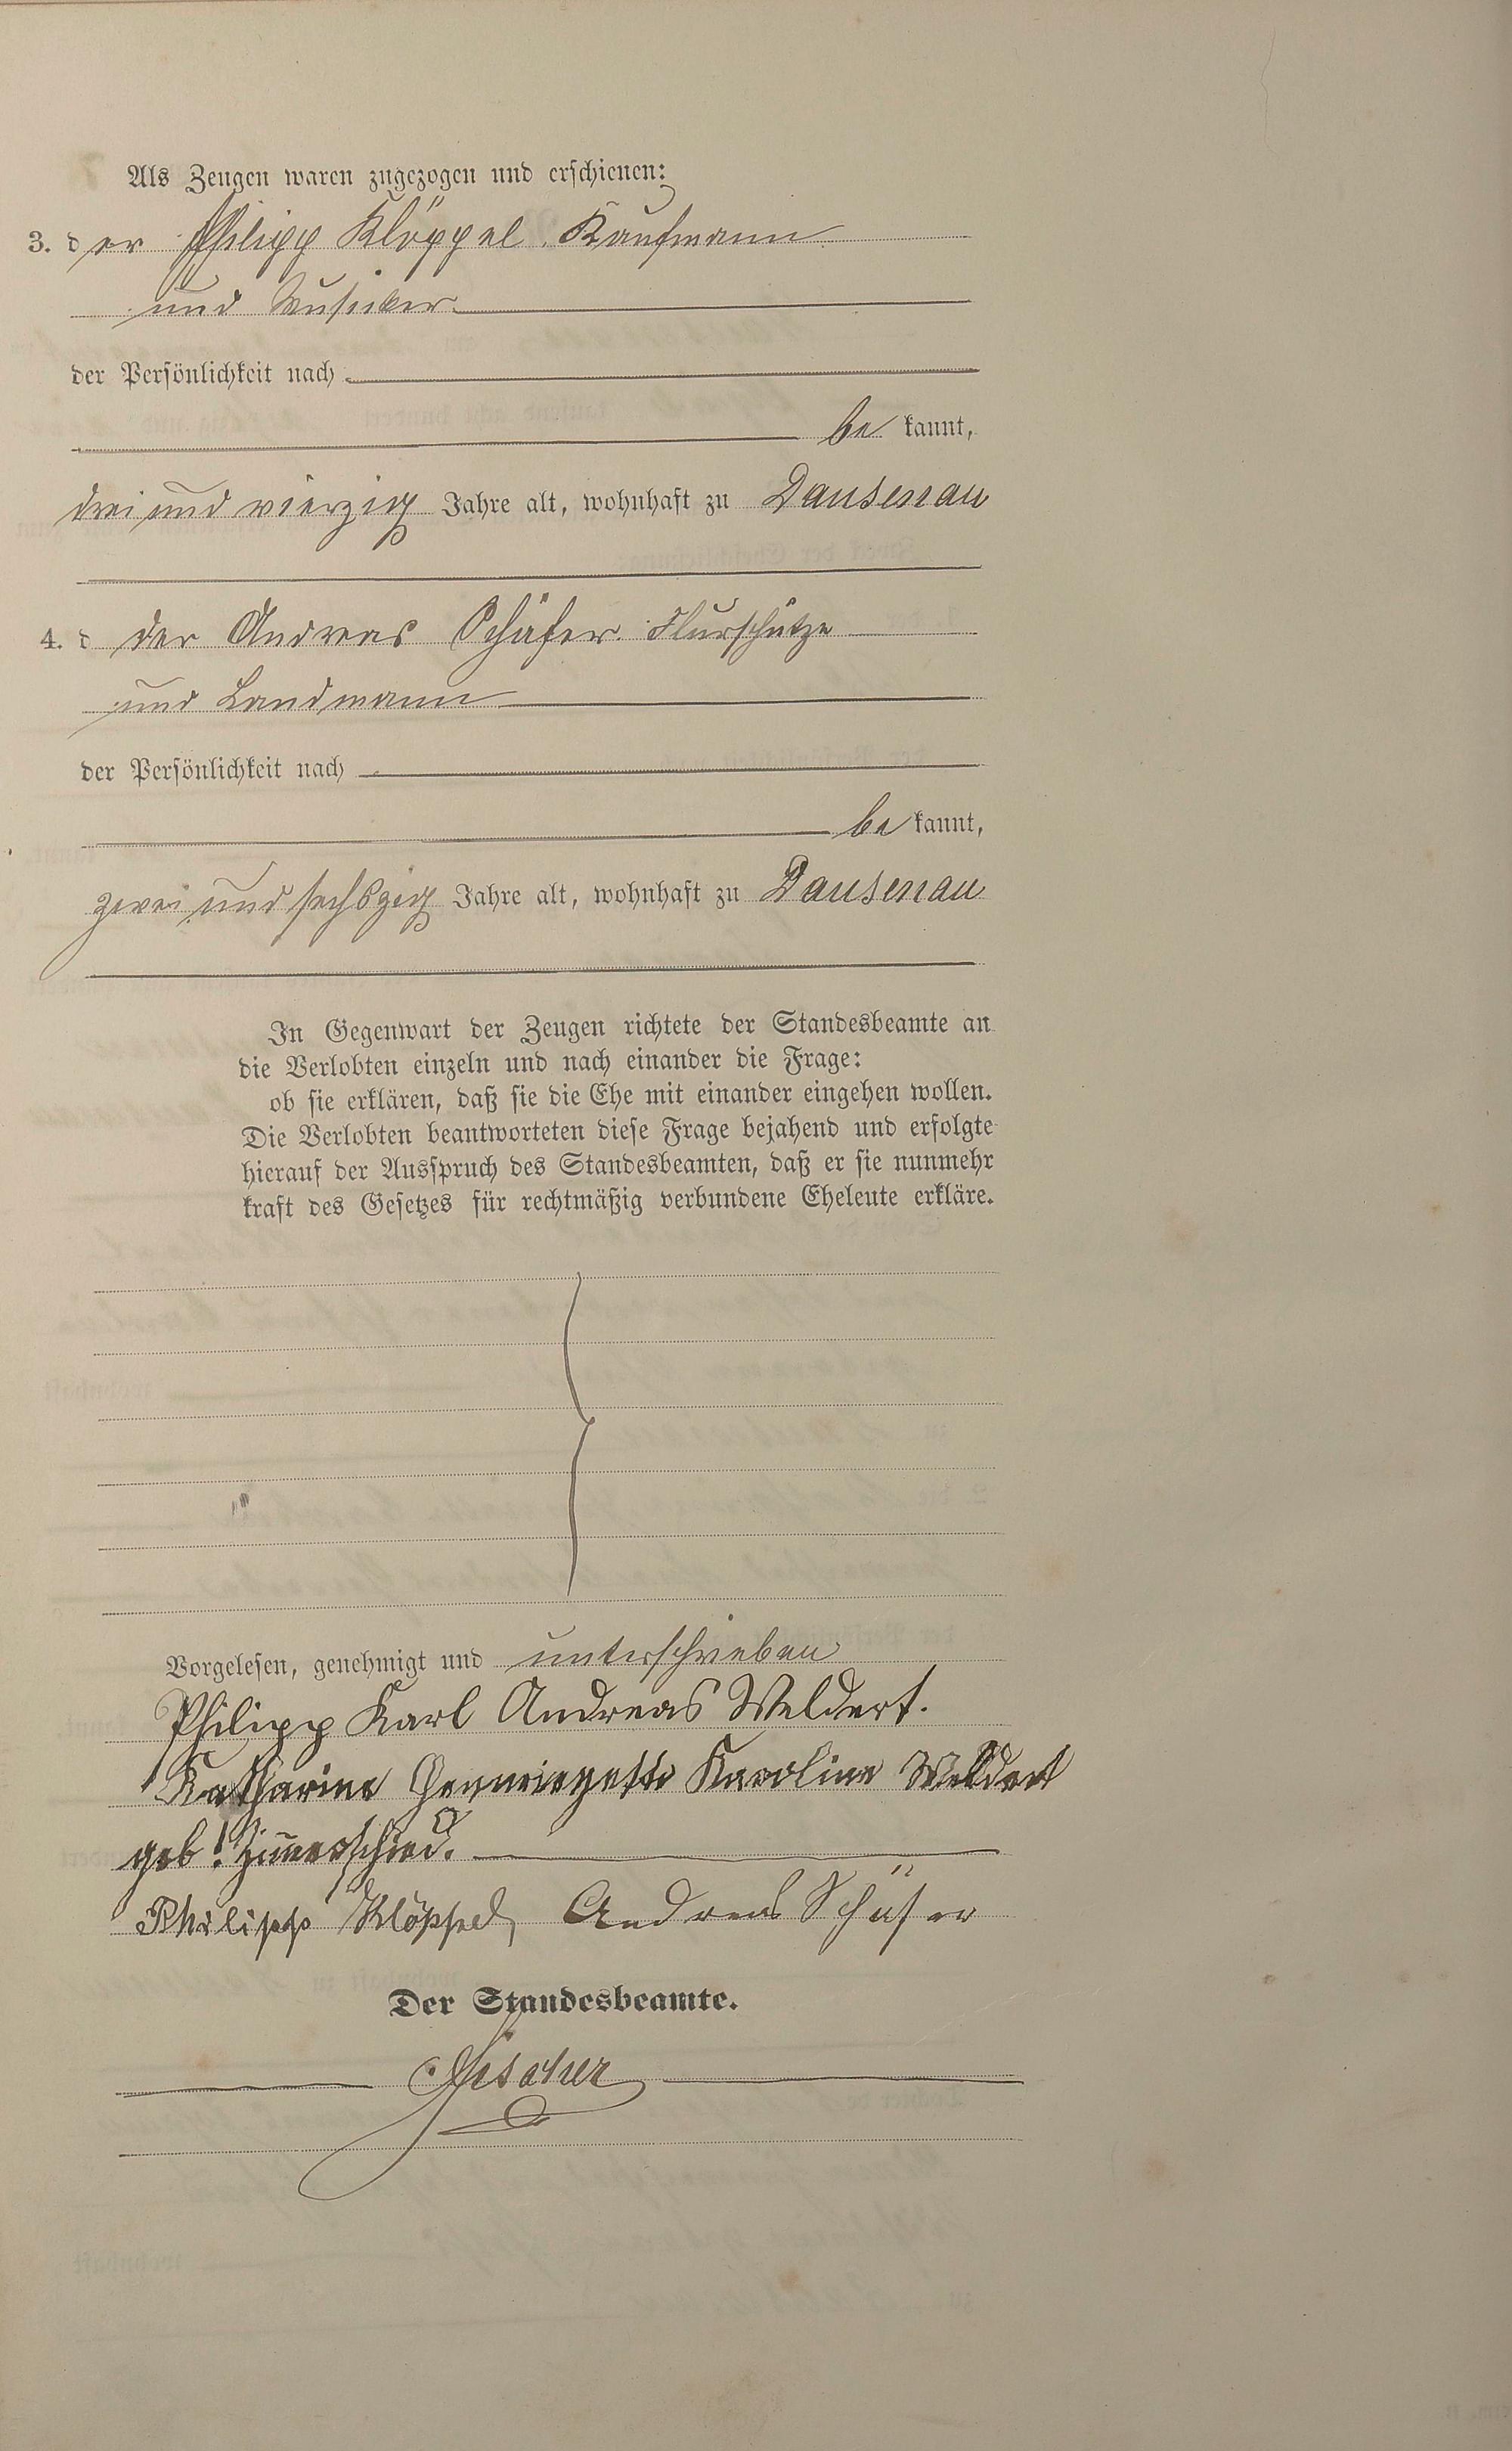 Als Zeugen waren zugezogen und erschienen:
3. der Philipp Klöppel Kaufmann
und Musiker
der Persönlichkeit nach
be kannt,
drei und vierzig Jahre alt, wohnhaft zu Dausenau
4. d der Andreas Schäfer Flurschütze
und Landmann
der Persönlichkeit nach
be kannt,
zwei und sechszig Jahre alt, wohnhaft zu Dausenau
In Gegenwart der Zeugen richtete der Standesbeamte an
die Verlobten einzeln und nach einander die Frage:
ob sie erklären, daß sie die Ehe mit einander eingehen wollen.
Die Verlobten beantworteten diese Frage bejahend und erfolgte
hierauf der Ausspruch des Standesbeamten, daß er sie nunmehr
kraft des Gesetzes für rechtmäßig verbundene Eheleute erkläre.
Vorgelesen, genehmigt und unterschrieben
Philipp Karl Andreas Weldert.
Katharine Henrieyette Karoline Weldert
geb! Zim̅erschied.
Philipp Klöppel, Andreas Schäfer
Der Standesbeamte.
Fischer